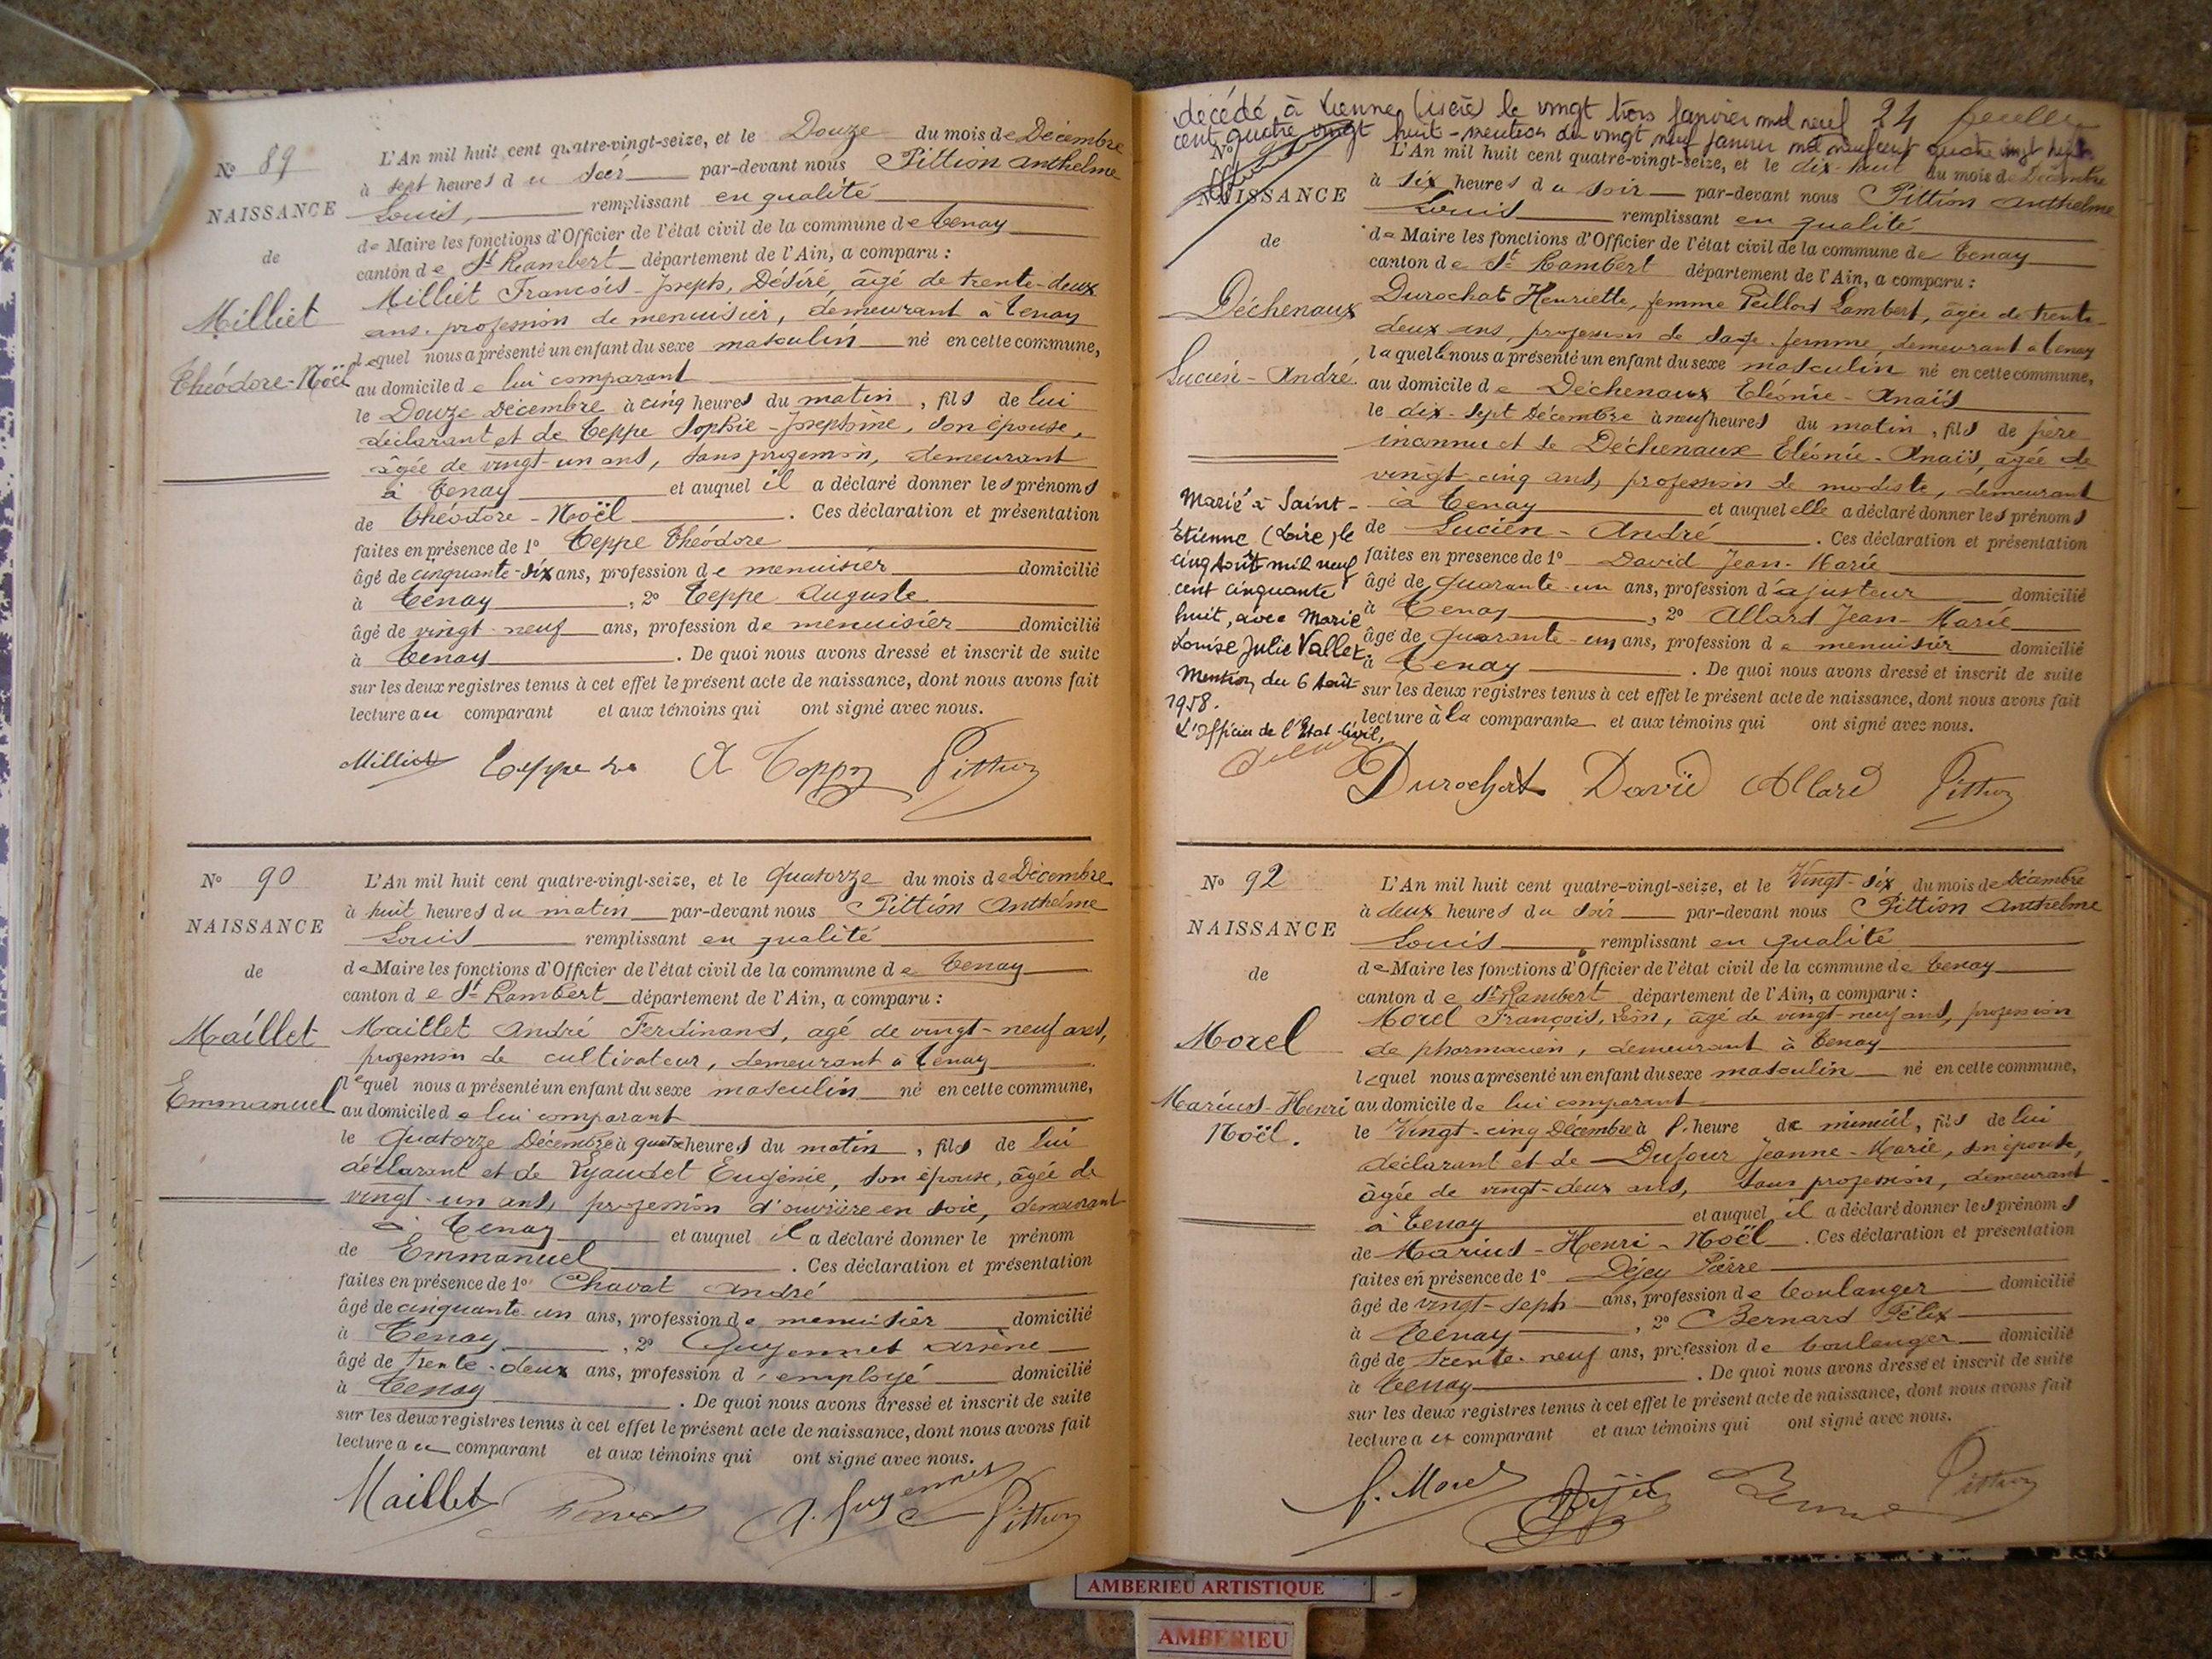 No 89
NAISSANCE
de
Milliet
Théodore-Noël
L'An mil huit cent quatre-vingt-seize, et le Douze du mois de Décembre
à sept heures du soir par-devant nous Pittion Anthelme
Louis, remplissant en qualité
de Maire les fonctions d'Officier de l'état civil de la commune de Tenay
canton de St Rambert département de l'Ain, a comparu :
Milliet François-Joseph, Désiré, âgé de trente-deux
ans, profession de menuisier, demeurant à Tenay
lequel nous a présenté un enfant du sexe masculin né en cette commune,
au domicile de lui comparant
le Douze Décembre à cinq heures du matin, fils de lui
déclarant et de Teppe Sophie-Josephine, son épouse,
âgée de vingt-un ans, sans profession, demeurant
à Tenay et auquel il a déclaré donner les prénoms
de Théodore-Noël. Ces déclaration et présentation
faites en présence de 1° Teppe Théodore
âgé de cinquante-six ans, profession de menuisier domicilié
à Tenay, 2° Teppe Auguste
âgé de vingt-neuf ans, profession de menuisier domicilié
à Tenay. De quoi nous avons dressé et inscrit de suite
sur les deux registres tenus à cet effet le présent acte de naissance, dont nous avons fait
lecture au comparant et aux témoins qui ont signé avec nous.
Milliet Teppe A Teppe Pittion
No 90
NAISSANCE
de
Maillet
Emmanuel
L'An mil huit cent quatre-vingt-seize, et le Quatorze du mois de Décembre
à huit heures du matin par-devant nous Pittion Anthelme
Louis remplissant en qualité
de Maire les fonctions d'Officier de l'état civil de la commune de Tenay
canton de St Rambert département de l'Ain, a comparu :
Maillet André Ferdinand, agé de vingt-neuf ans,
profession de cultivateur, demeurant à Tenay
lequel nous a présenté un enfant du sexe masculin né en cette commune,
au domicile de lui comparant
le Quatorze Décembre à quatre heures du matin, fils de lui
déclarant et de Eugénie, son épouse, âgée de
vingt-un ans, profession d'ouvrière en soie, demeurant
à Tenay et auquel il a déclaré donner le prénom
de Emmanuel. Ces déclaration et présentation
faites en présence de 1° Chavat André
âgé de cinquante-un ans, profession de menuisier domicilié
à Tenay, 2° Guyennet Arsène
âgé de trente-deux ans, profession d'employé domicilié
à Tenay. De quoi nous avons dressé et inscrit de suite
sur les deux registres tenus à cet effet le présent acte de naissance, dont nous avons fait
lecture au comparant et aux témoins qui ont signé avec nous.
Maillet A. Guyennet Pittion
décédé à Vienne (isère) le vingt trois Janvier mil neuf 24
cent quatre vingt huit - mention du vingt neuf Janvier mil neuf cent quatre vingt huit
No
NAISSANCE
de
Déchenaux
Lucien-André.
L'An mil huit cent quatre-vingt-seize, et le dix-huit du mois de Décembre
à six heures du soir par-devant nous Pittion Anthelme
Louis remplissant en qualité
de Maire les fonctions d'Officier de l'état civil de la commune de Tenay
canton de St Rambert département de l'Ain, a comparu :
Durochat Henriette, femme Peillod Lambert, âgée de trente-
deux ans, profession de sage-femme, demeurant à Tenay
laquelle nous a présenté un enfant du sexe masculin né en cette commune,
au domicile de Déchenaux Eléonie-Anaïs
le dix-sept Décembre à neuf heures du matin, fils de père
inconnu et de Déchenaux Eléonie-Anaïs, âgée de
vingt-cinq ans, profession de modiste, demeurant
à Tenay et auquel elle a déclaré donner les prénoms
de Lucien-André. Ces déclaration et présentation
faites en présence de 1° David Jean-Marie
âgé de Quarante-un ans, profession d'ajusteur domicilié
à Tenay, 2° Allard Jean-Marie
âgé de Quarante-un ans, profession de menuisier domicilié
à Tenay. De quoi nous avons dressé et inscrit de suite
sur les deux registres tenus à cet effet le présent acte de naissance, dont nous avons fait
lecture à la comparante et aux témoins qui ont signé avec nous.
Marié à Saint-
Etienne (Loire) le
cinq Août mil neuf
cent cinquante
huit, avec Marie
Louise Julie Vallet.
Mention du 6 Août
1958.
L'Officier de l'Etat-Civil,
Durochat David Allard Pittion
No 92
NAISSANCE
de
Morel
Marius-Henri
Noël.
L'An mil huit cent quatre-vingt-seize, et le Vingt-six du mois de Décembre
à deux heures du soir par-devant nous Pittion Anthelme
Louis remplissant en qualité
de Maire les fonctions d'Officier de l'état civil de la commune de Tenay
canton de St Rambert département de l'Ain, a comparu :
Morel François, Léon, âgé de vingt-neuf ans, profession
de pharmacien, demeurant à Tenay
lequel nous a présenté un enfant du sexe masculin né en cette commune,
au domicile de lui comparant
le Vingt-cinq Décembre à l'heure de minuit, fils de lui
déclarant et de Dufour Jeanne-Marie, son épouse,
âgée de vingt-deux ans, sans profession, demeurant
à Tenay et auquel il a déclaré donner les prénoms
de Marius-Henri-Noël. Ces déclaration et présentation
faites en présence de 1° Déjey Pierre
âgé de vingt-sept ans, profession de boulanger domicilié
à Tenay, 2° Bernard Félix
âgé de trente-neuf ans, profession de boulanger domicilié
à Tenay. De quoi nous avons dressé et inscrit de suite
sur les deux registres tenus à cet effet le présent acte de naissance, dont nous avons fait
lecture au comparant et aux témoins qui ont signé avec nous.
f. Morel Pittion
AMBERIEU ARTISTIQUE
AMBERIEU